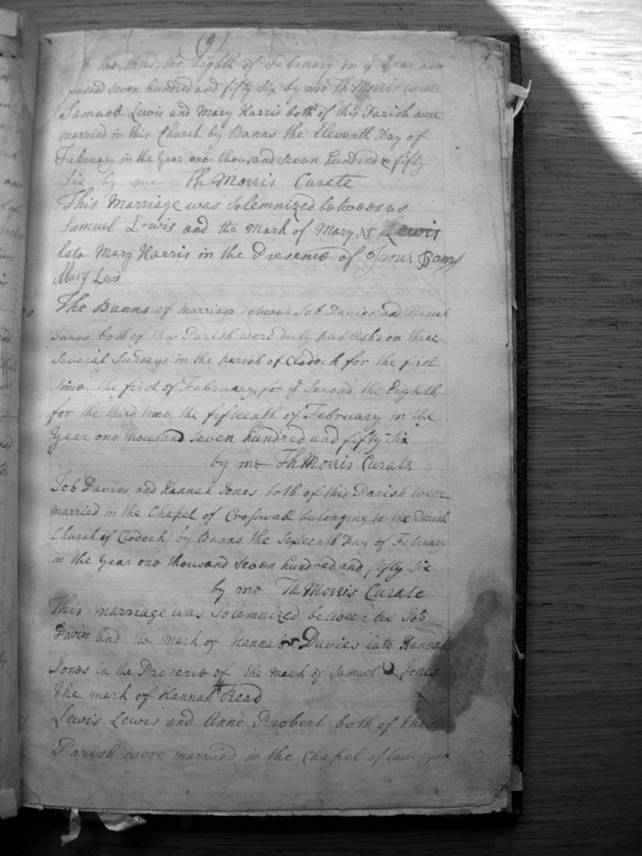 (9)
the third, the Eighth of February in ye Year one
thousand seven hundred and fifty six by me Th Morris Curate
Samuel Lewis and Mary Harris both of this Parish were
married in this Church by Banns the Eleventh Day of
February in the Year one thousand seven hundred & fifty
Six by me Th Morris Curate
This Marriage was Solemnized between us
Samuel Lewis and the mark of Mary Lewis
late Mary Harris in the Presence of James
Mary Lewis
The Banns of marriage between Job Davies and Hannah
Jones both of this Parish were duly published on three
several Sundays in the parish of Clodock for the first
time, the first of February, for ye Second the Eighth,
for the third time, the fifteenth of February in the
Year one thousand seven hundred and fifty Six
by me Th Morris Curate
Job Davies and Hannah Jones both of this Parish were
married in the Chapel of Craswall belonging to the Parish
Church of Clodock by Banns the Sixteenth Day of February
in the Year one thousand seven hundred and fifty Six
by me Th Morris Curate
This marriage was Solemnized between us Job
Davies and the mark of Hannah Davies late Hannah
Jones in the Presence of the mark of Samuel Jones
the mark of Hannah Read
Lewis Lewis and Anne Probert both of this
Parish were married in the Chapel of